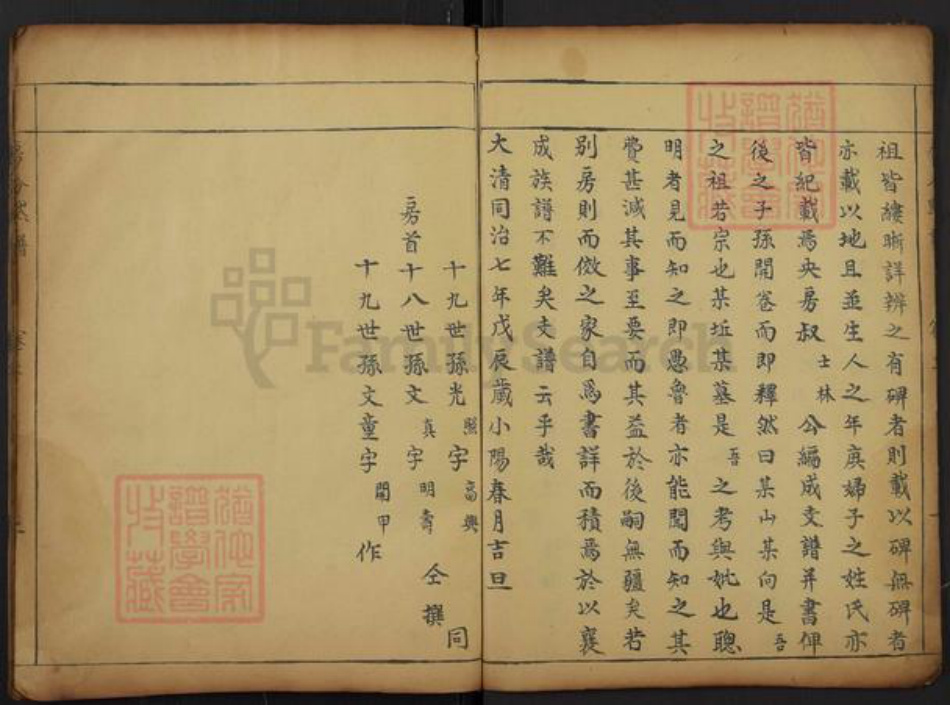 祖皆縷晰詳辨之有碑者則載以碑無碑者
亦載以地且並生人之年庚婦子之姓氏亦
皆紀載焉央房叔士林公編成支譜并書俾
後之子孫開卷而即釋然曰某山某向是吾
之祖若宗也某坵某墓是吾之考與妣也聰
明者見而知之即愚魯者亦能聞而知之其
費甚減其事至要而其益於後嗣無疆矣若
別房則而倣之家自為書詳而積焉於以襄
成族譜不難矣支譜云乎哉
大清同治七年戊辰歲小陽春月吉旦
十九世孫光熙字高興同
房首十八世孫文真字明壽仝撰
十九世孫文童字開甲作
FamilySearch